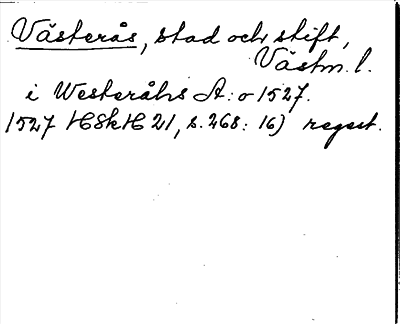 Västerås, stad och stift,
Västm. l.
i Westeråhs A:o 1527.
1527 HSkH 21, s. 268: 16) regest.